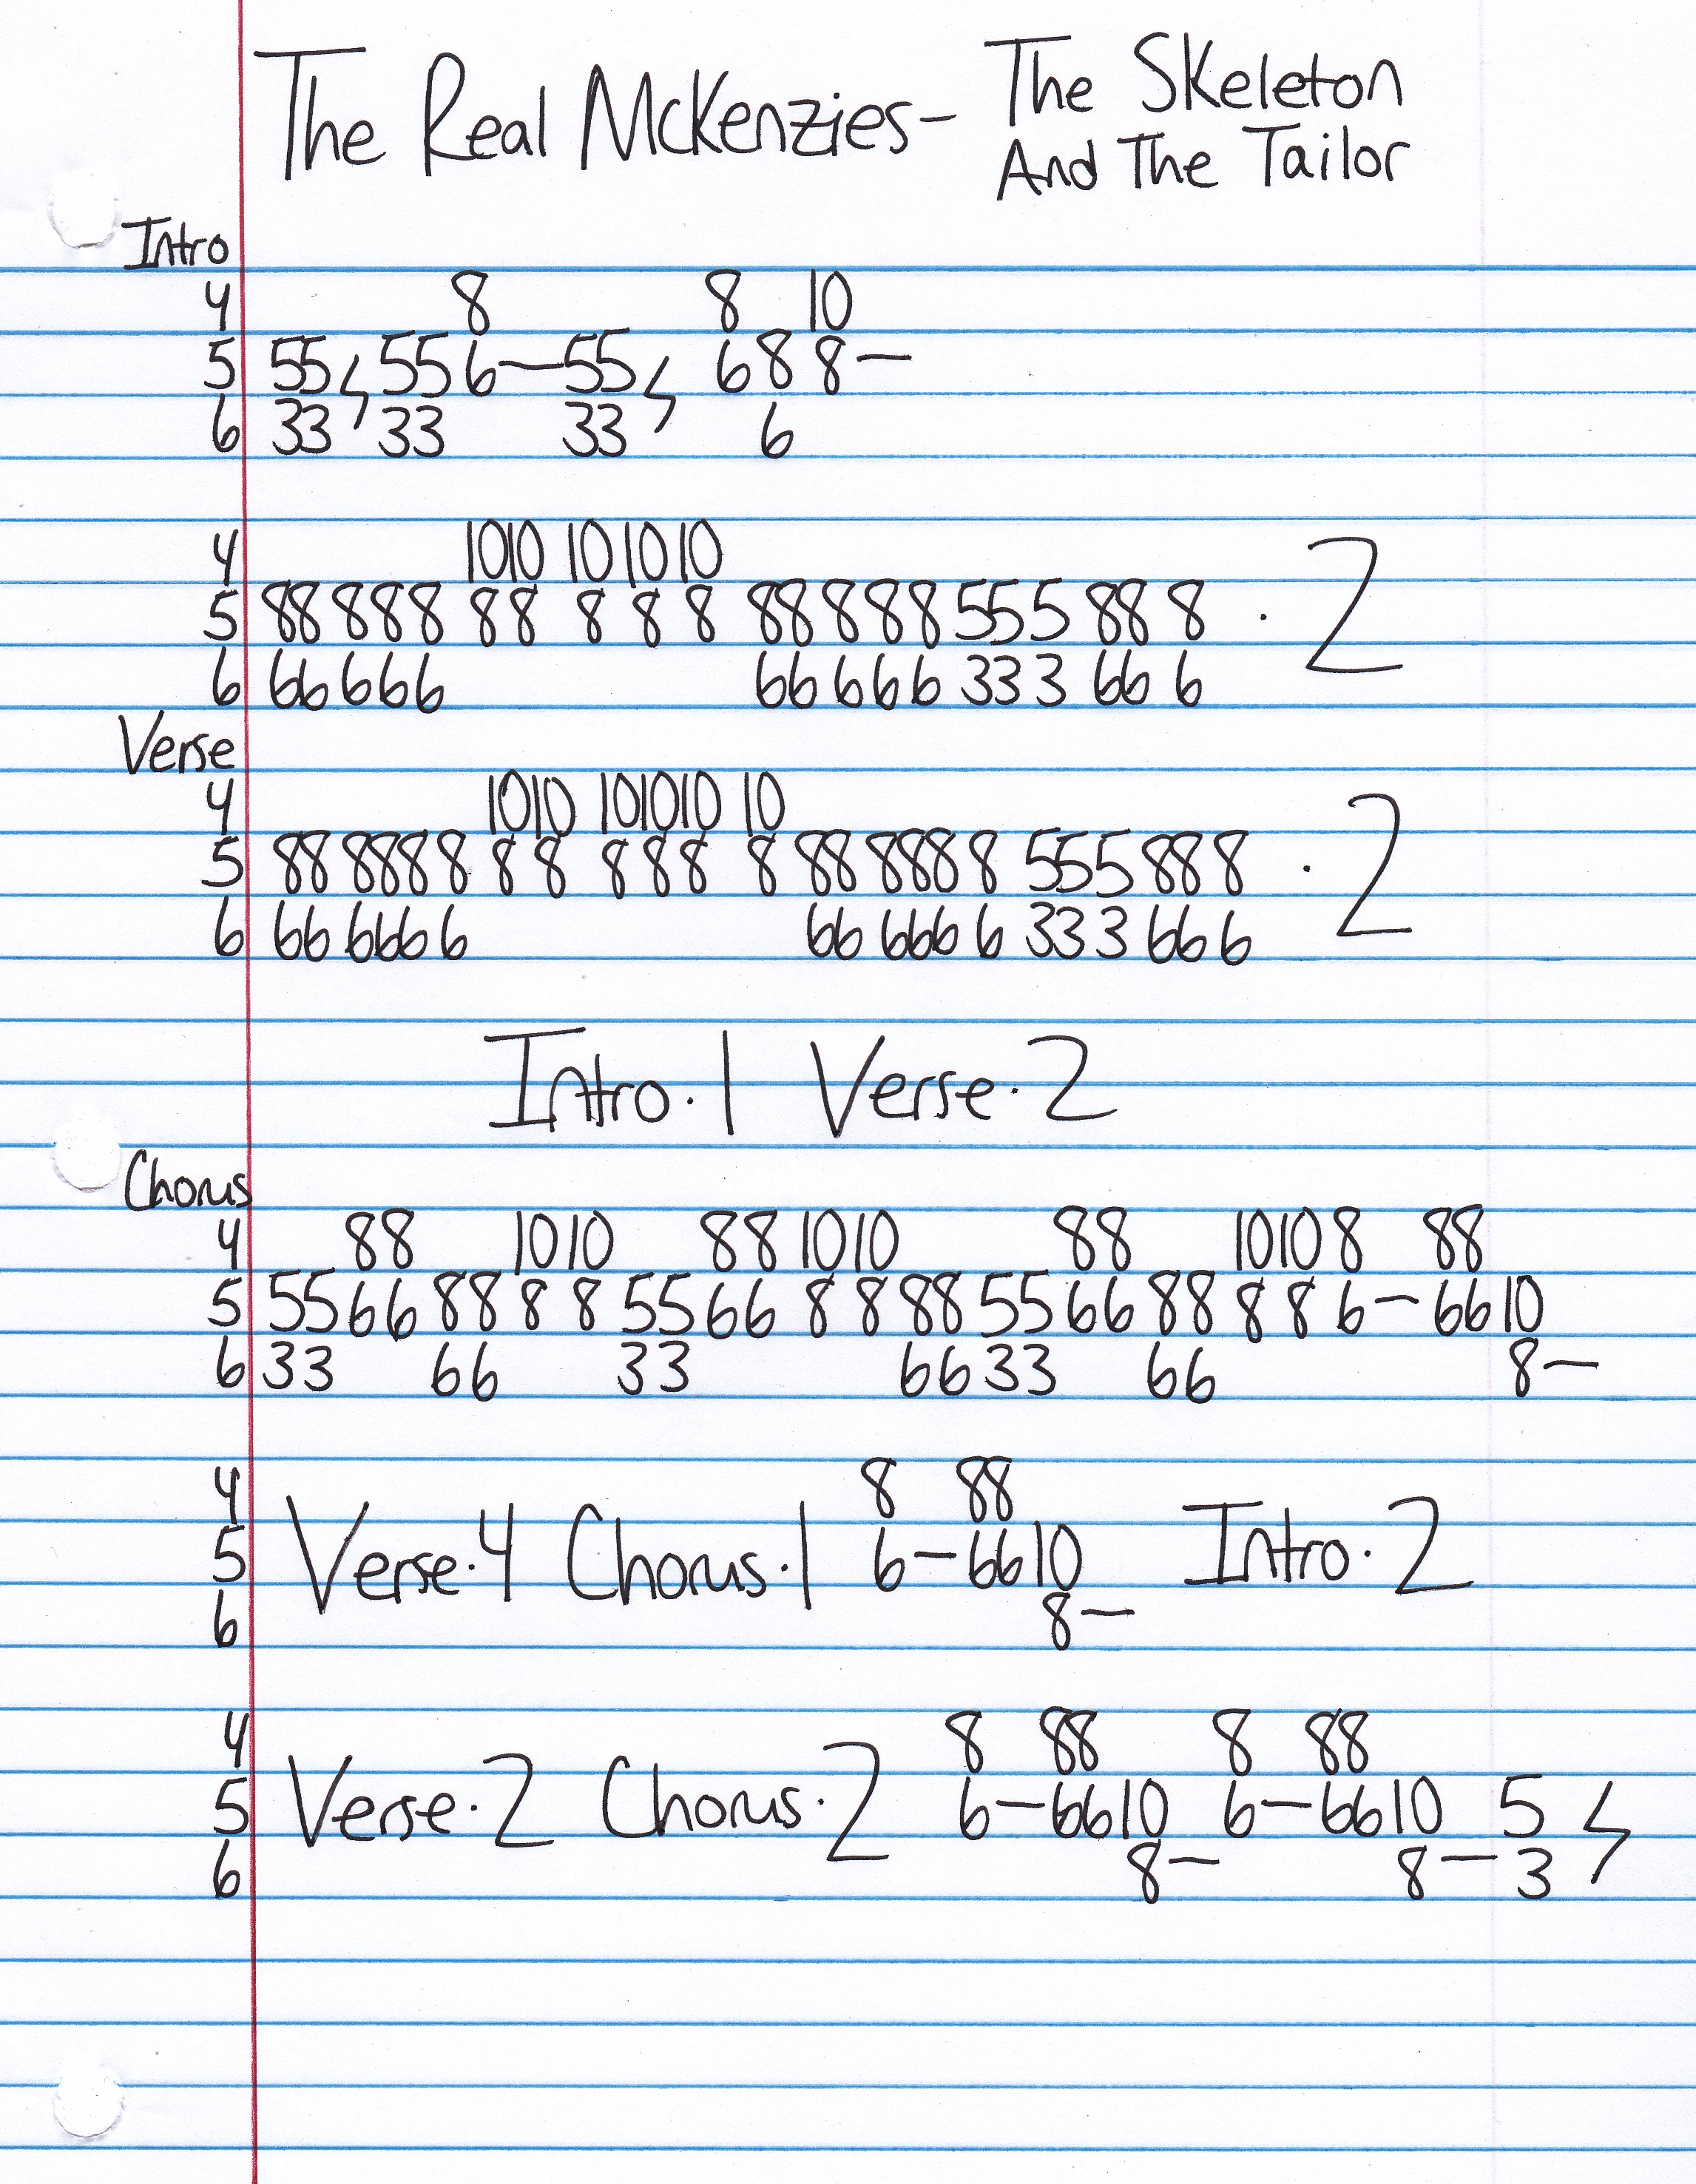 The Real McKenzies- The Skeleton And The Tailor
Intro
4 8 8 10
5 55 ϟ 55 6 — 55 ϟ 6 8 8 —
6 33 33 33 6
4 10 10 10 10 10
5 88 8 8 8 8 8 8 8 8 88 8 8 8 5 5 5 88 8 · 2
6 66 6 6 6 66 6 6 6 33 3 66 6
Verse
4 10 10 10 10 10 10
5 88 888 8 8 8 8 8 8 8 88 888 8 555 888 · 2
6 66 666 6 66 666 6 333 666
Intro · 1 Verse · 2
Chorus
4 88 10 10 88 10 10 88 10 10 8 88
5 55 66 88 8 8 55 66 8 8 88 55 66 88 8 8 6 — 66 10
6 33 66 33 66 33 66 8 —
4 8 88
5 Verse · 4 Chorus · 1 6 — 66 10 Intro · 2
6 8 —
4 8 88 8 88
5 Verse · 2 Chorus · 2 6 — 66 10 6 — 66 10 5 ϟ
6 8 — 8 — 3